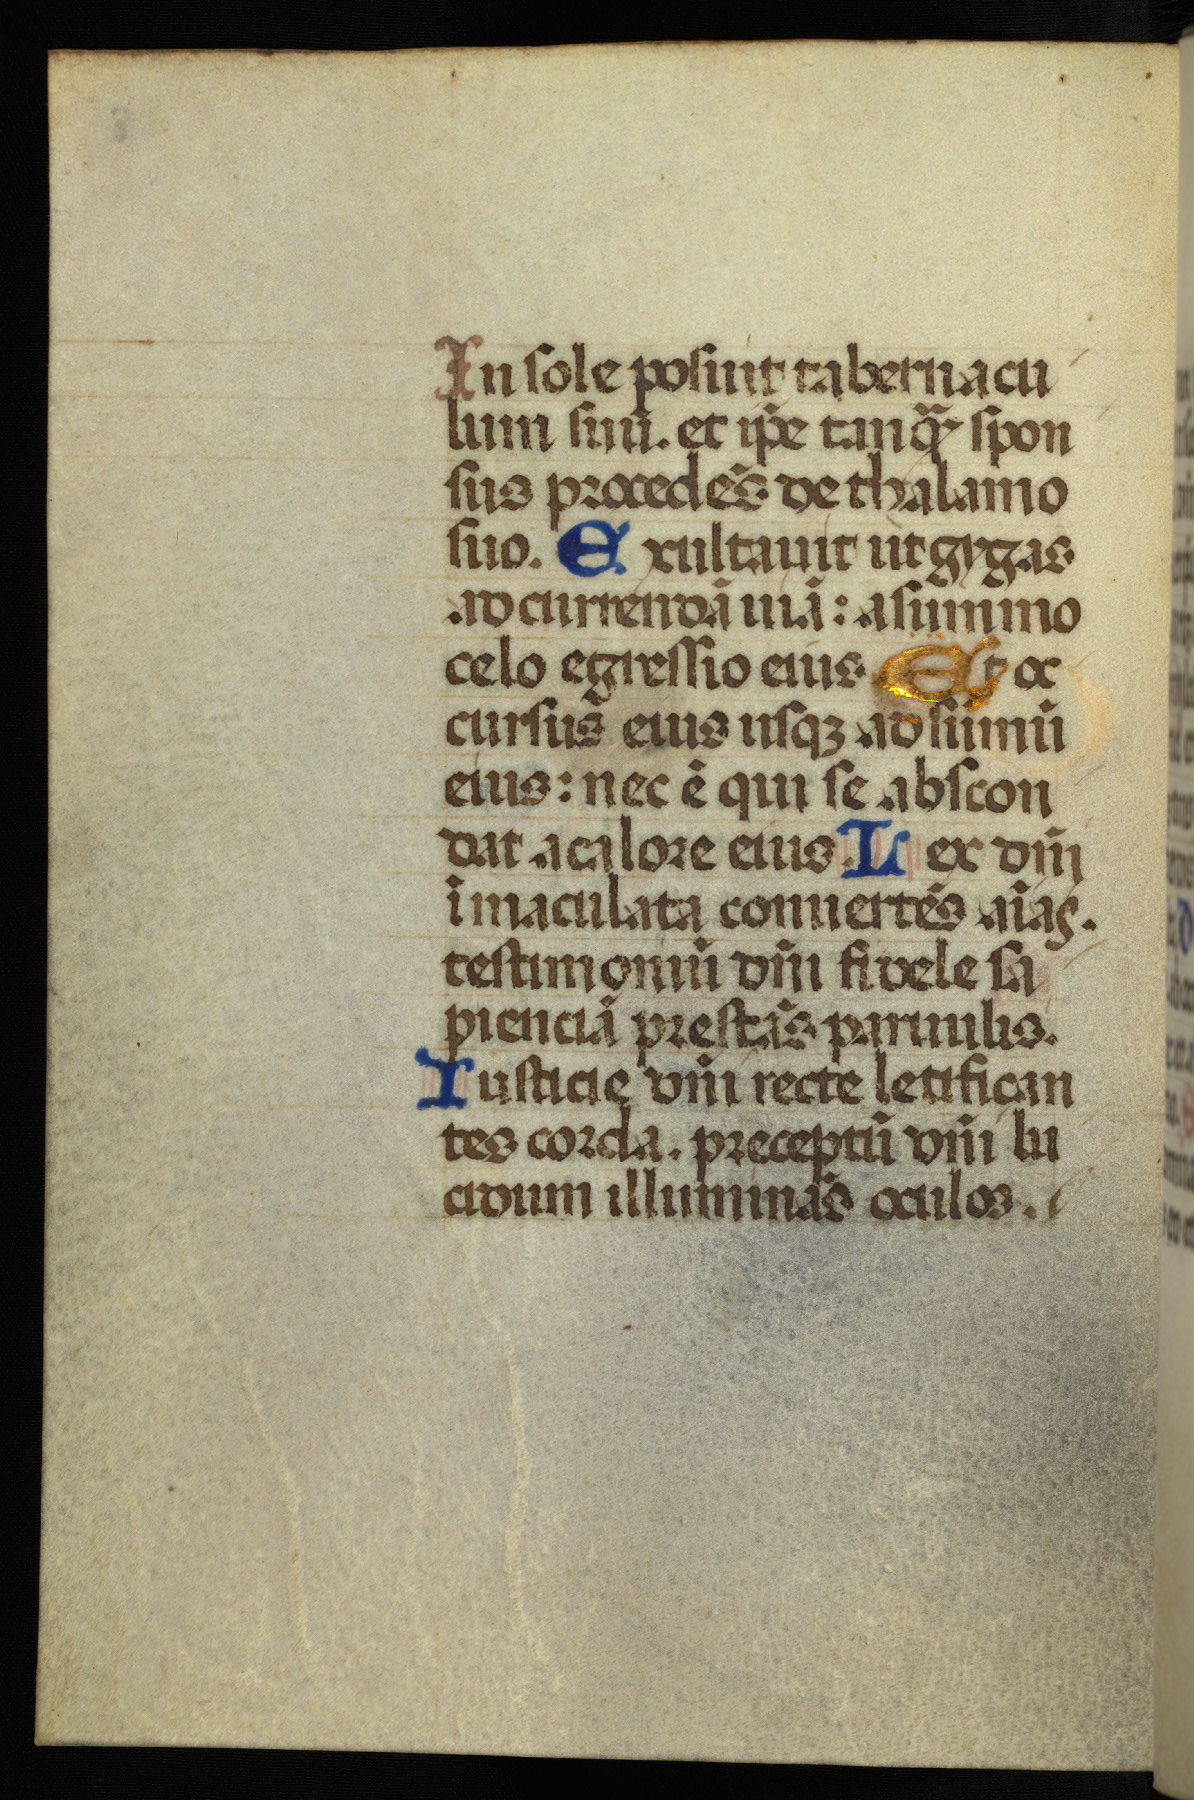 In sole posuit tabernacu
lum suū. et ip̄e tanq̄ȝ spon
sus procedēs de thalamo
suo. Exultauit ut gygas
ad currendā uiā: a summo
celo egressio eius. Et oc
cursus̄ eius usqꝫ ad sūmū
eius: nec ē qui se abscon
dat a calore eius. Lex dn̄i
īmaculata conuertēs aīas.
testimoniū dn̄i fidele sa
pienciā prestās paruulis.
Iusticie dn̄i recte letifican
tes corda. preceptū dn̄i lu
cidum illuminās oculos.